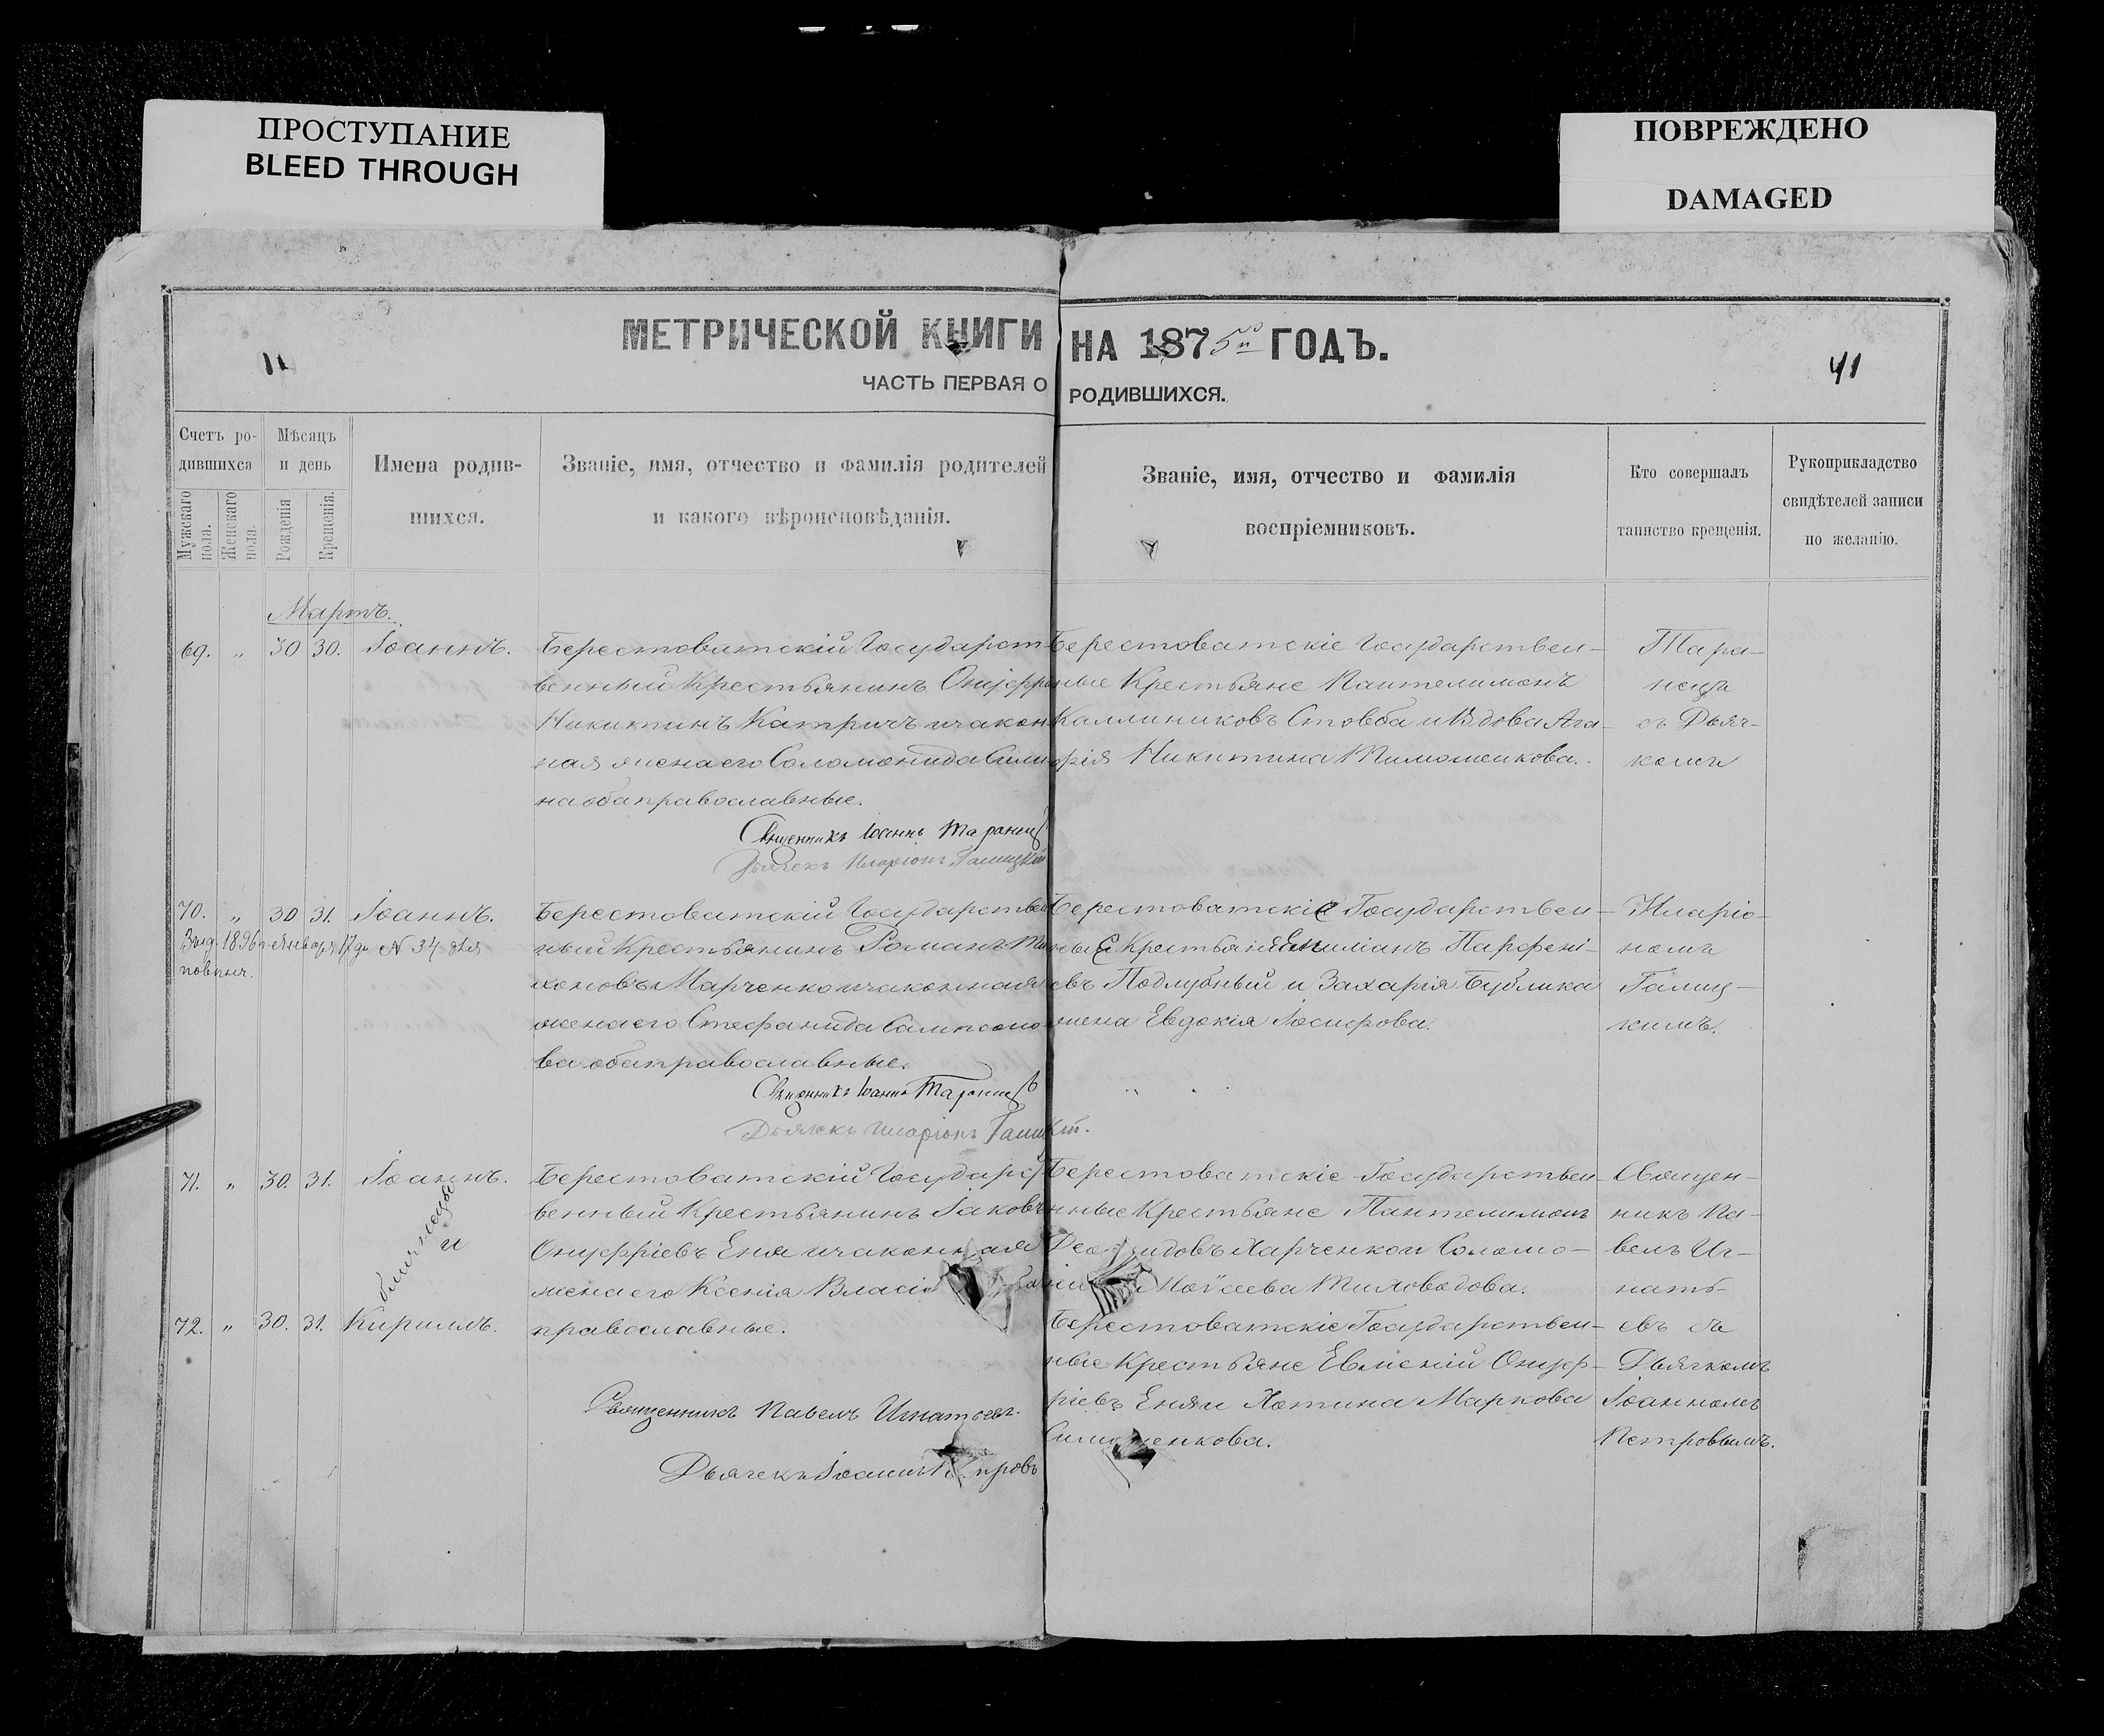 ПРОСТУПАНИЕ
BLEED THROUGH
ПОВРЕЖДЕНО
DAMAGED
МЕТРИЧЕСКОЙ КНИГИ НА 1875й ГОДЪ.
41
ЧАСТЬ ПЕРВАЯ О РОДИВШИХСЯ.
Счетъ ро-
дившихся
Мужскаго пола.
Женскаго пола.
Мѣсяцъ
и день
Рожденія
Крещенія.
Имена родив-
шихся.
Званіе, имя, отчество и фамилія родителей
и какого вѣроисповѣданія.
Званіе, имя, отчество и фамилія
воспріемниковъ.
Кто совершалъ
таинство крещенія.
Рукоприкладство
свидѣтелей записи
по желанію.
Мартъ.
69. „ 30 30. Іоаннъ.
Берестоватскій Государст-
венный Крестьянинъ Онуфрій
Никитинъ Катричъ и закон
ная жена его Соломонида
на оба православные.
Священникъ Іоаннъ Таранецъ
Дьячекъ Иларіонъ Галицкій
Берестоватскіе Государствен-
ные Крестьяне Пантелимонъ
Каллиниковъ Стовба и Вдова Ага-
фія Никитина Тимошенкова.
Тара-
нецъ
съ Дьяч-
комъ
70. „ 30 31. Іоаннъ.
1896 г. января 17 дн. № 34 для
Берестоватскій Государствен
ный Крестьянинъ Романъ Ти
хоновъ Марченко и законная
жена его Стефанида Сампсоно
ва оба православные.
Священникъ Іоаннъ Таранецъ
Дьячекъ Иларіонъ Галицкій.
Берестоватскіе Государствен-
ные Крестьяне Парфені-
евъ Поддубный и Захарія Бублика
жена Евдокія Іосифова.
Иларіо-
номъ
Галиц-
кимъ.
71. „ 30. 31. Іоаннъ.
близнецы
и
72. „ 30. 31. Кириллъ.
Берестоватскій Государст
венный Крестьянинъ Іаковъ
Онуфріевъ Еня и законная
жена его Ксенія Власіе
православные.
Священникъ Павелъ Игнатьевъ.
Дьячекъ Іоаннъ
Берестоватскіе Государствен-
ные Крестьяне Пантелимонъ
Харченко и Соломо-
Моѵсеева
Берестоватскіе Государствен-
ные Крестьяне Евменій Онуф-
ріевъ Еня и Хотина Маркова
Священ-
никъ Па-
велъ Иг-
нать-
евъ съ
Дьячкомъ
Іоанномъ
Петровымъ.